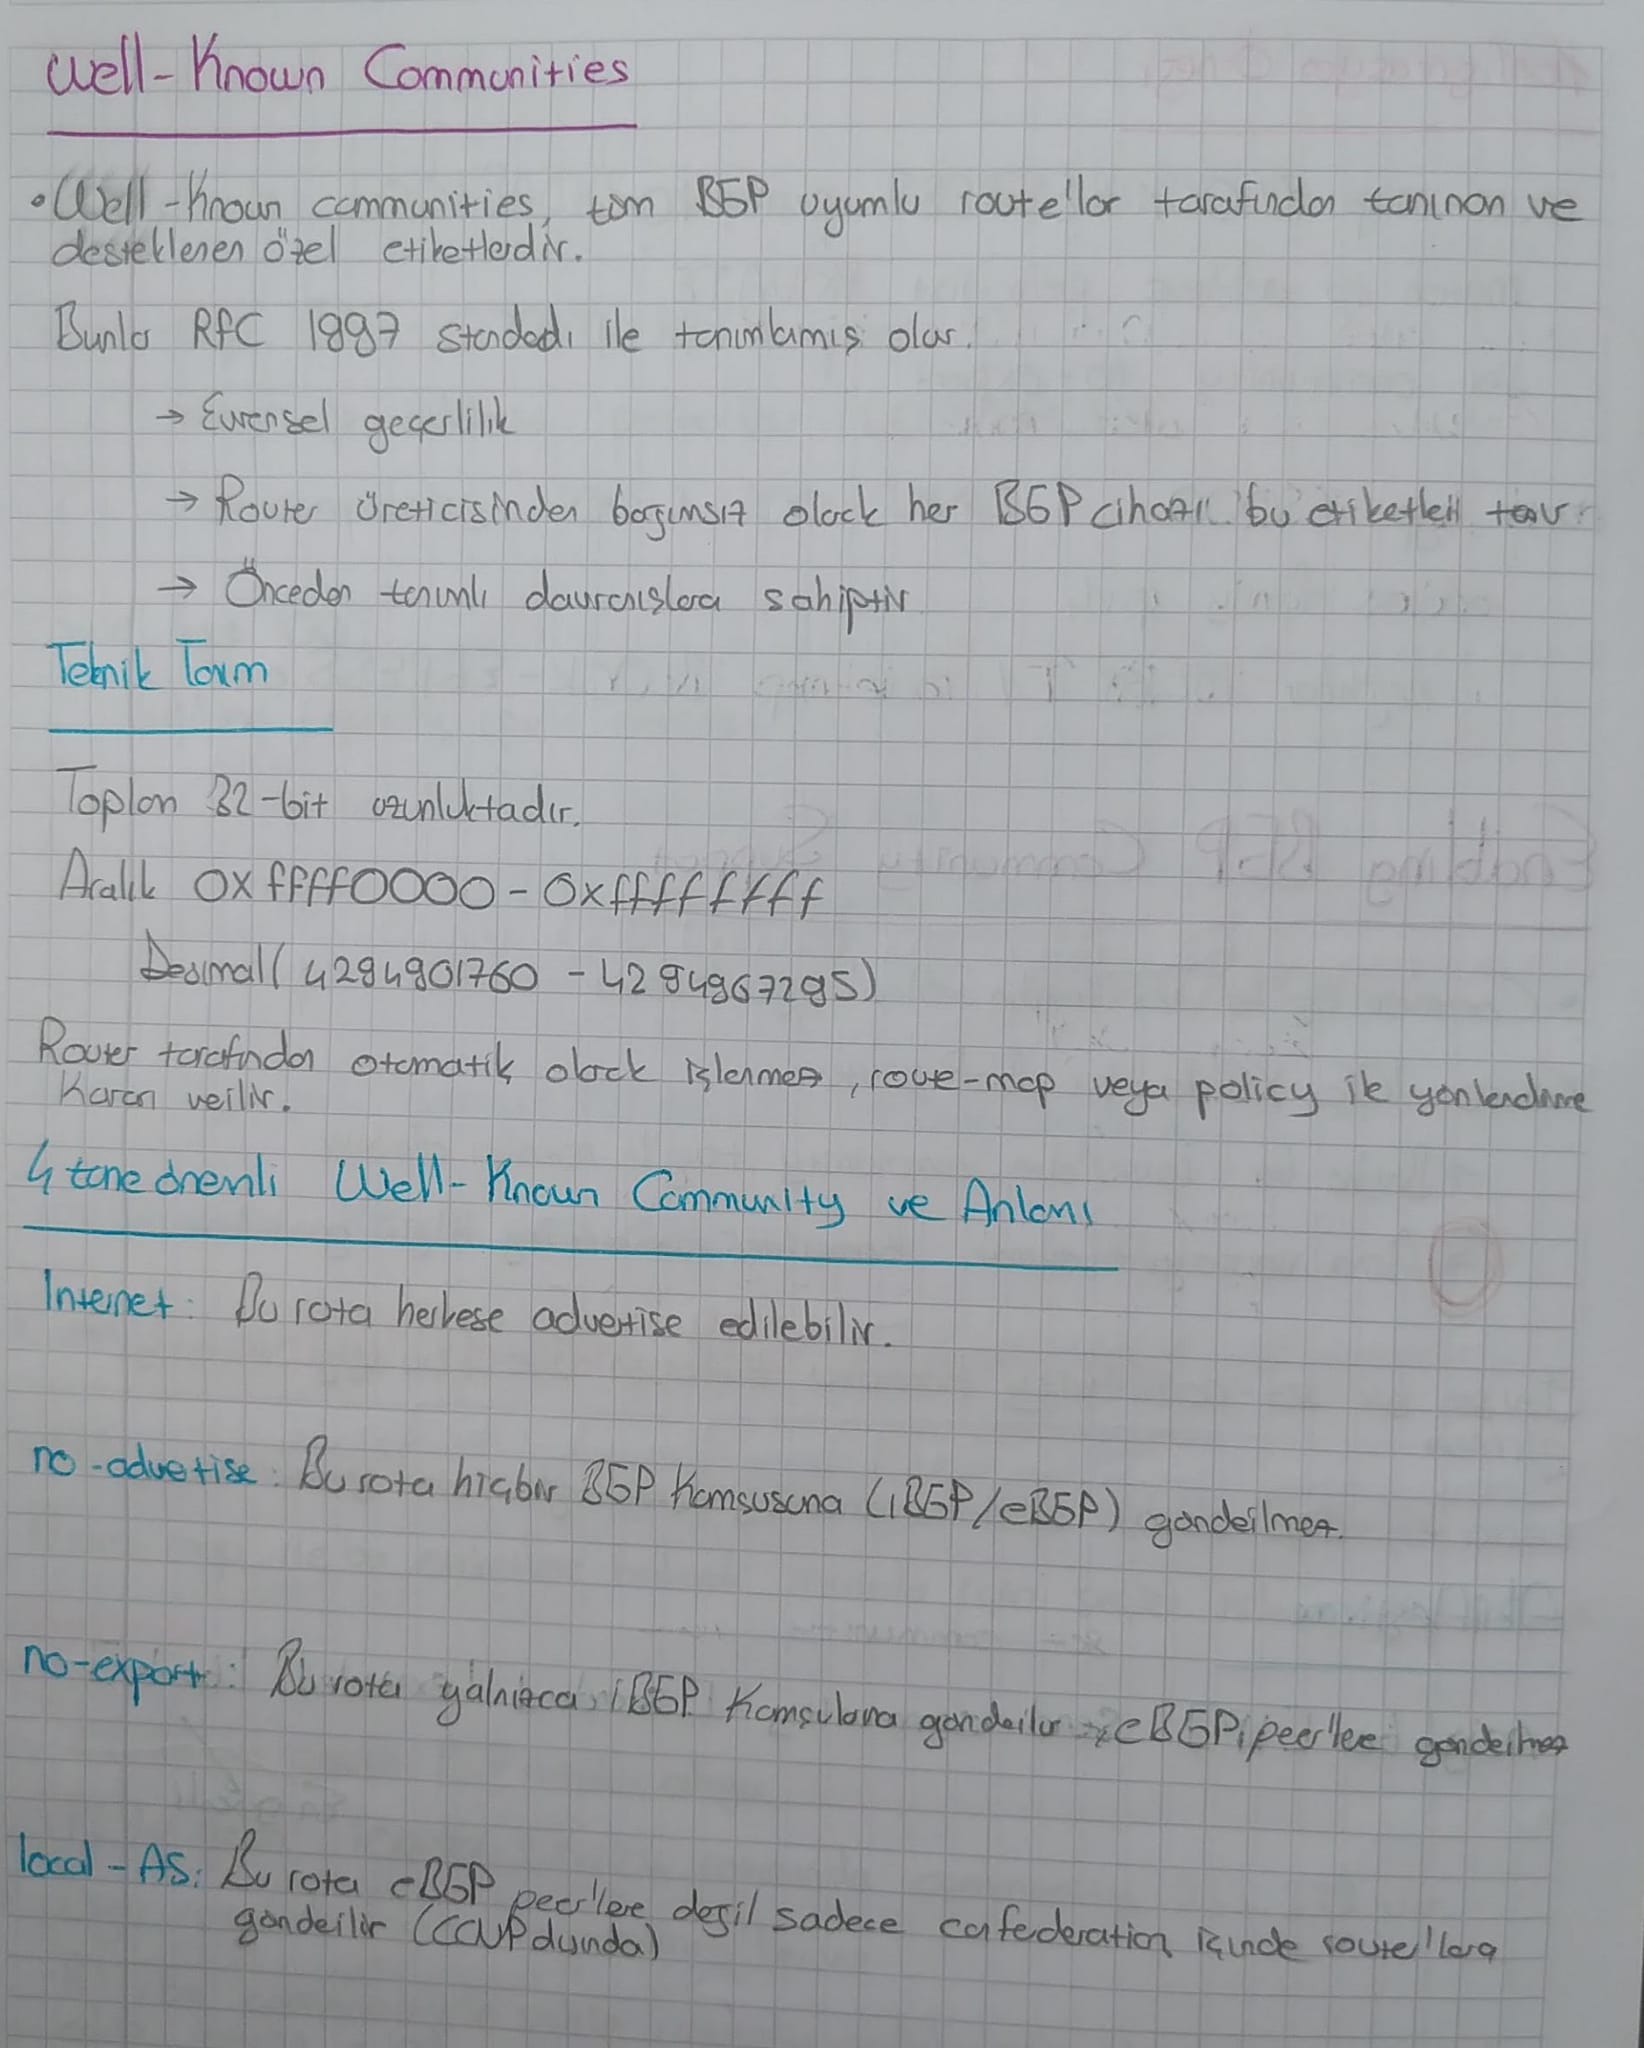 Well-Known Communities
• Well-Known communities, tüm BGP uyumlu route'lar tarafından tanınan ve
desteklenen özel etiketlerdir.
Bunlar RFC 1997 standardı ile tanımlamış olur.
→ Evrensel geçerlilik
→ Router üreticisinden bağımsız olarak her BGP cihazı bu etiketleri tanır
→ Önceden tanımlı davranışlara sahiptir
Teknik Tanım
Toplam 32-bit uzunluktadır.
Aralık 0xffff0000 - 0xffffffff
Desimal (4294901760 - 4294967295)
Router tarafından otomatik olarak işlenmez, route-map veya policy ile yönlendirme
Kararı verilir.
4 tane önemli Well-Known Community ve Anlamı
Internet: Bu rota herkese advertise edilebilir.
no-advertise: Bu rota hiçbir BGP Komşusuna (iBGP/eBGP) gönderilmez.
no-export: Bu rota yalnızca iBGP Komşulara gönderilir eBGP peer'lere gönderilmez
local-AS: Bu rota eBGP peer'lere değil sadece cofederation içinde route'lara
gönderilir (CCNP dışında)